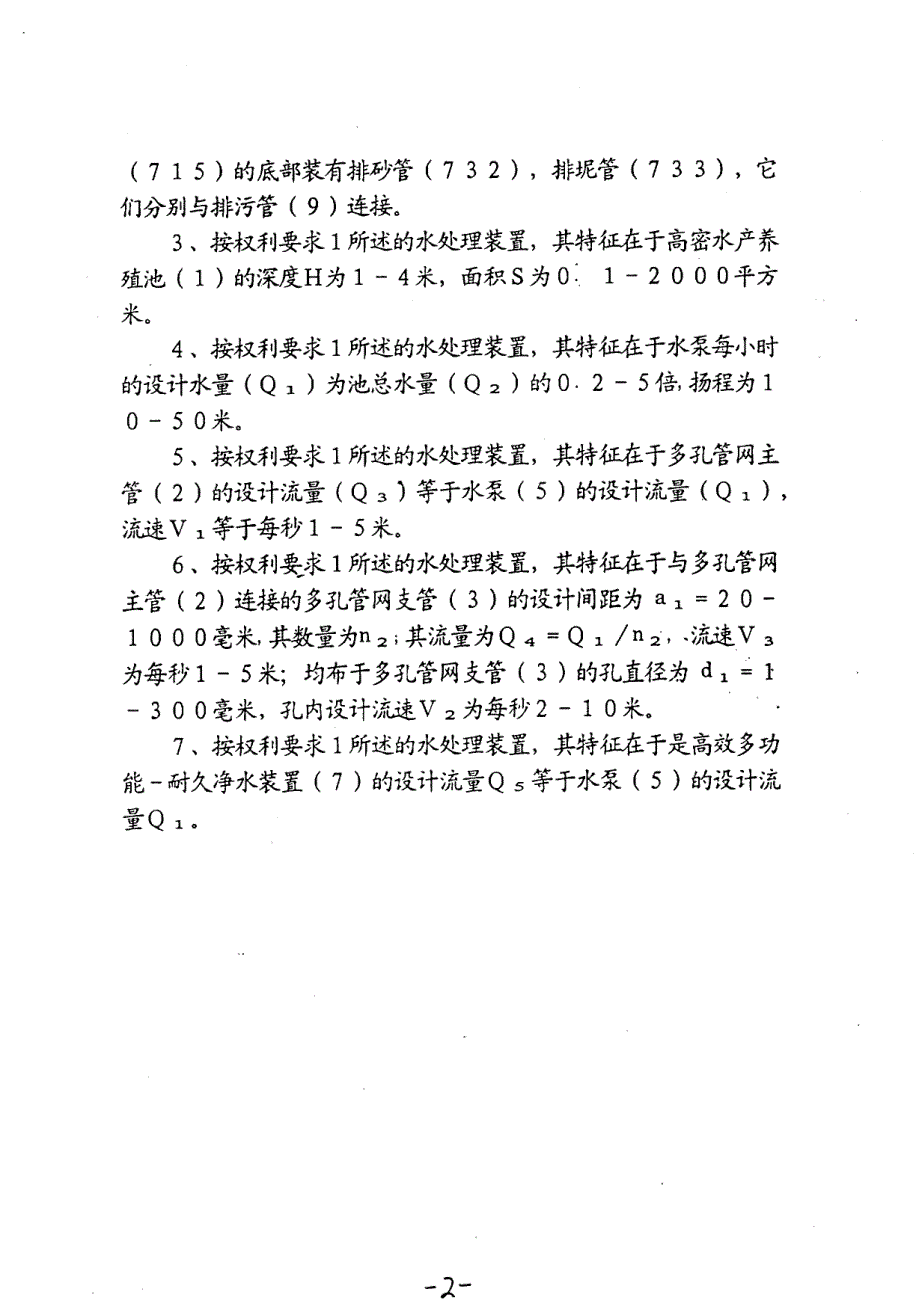 （715）的底部装有排砂管（732），排坭管（733），它
们分别与排污管（9）连接。
3、按权利要求1所述的水处理装置，其特征在于高密水产养
殖池（1）的深度H为1－4米，面积S为0．1－2000平方
米。
4、按权利要求1所述的水处理装置，其特征在于水泵每小时
的设计水量（Q₁）为池总水量（Q₂）的0．2－5倍，扬程为1
0－50米。
5、按权利要求1所述的水处理装置，其特征在于多孔管网主
管（2）的设计流量（Q₃）等于水泵（5）的设计流量（Q₁），
流速V₁等于每秒1－5米。
6、按权利要求1所述的水处理装置，其特征在于与多孔管网
主管（2）连接的多孔管网支管（3）的设计间距为a₁＝20－
1000毫米，其数量为n₂；其流量为Q₄＝Q₁/n₂，流速V₃
为每秒1－5米；均布于多孔管网支管（3）的孔直径为d₁＝1
－300毫米，孔内设计流速V₂为每秒2－10米。
7、按权利要求1所述的水处理装置，其特征在于是高效多功
能－耐久净水装置（7）的设计流量Q₅等于水泵（5）的设计流
量Q₁。
-2-